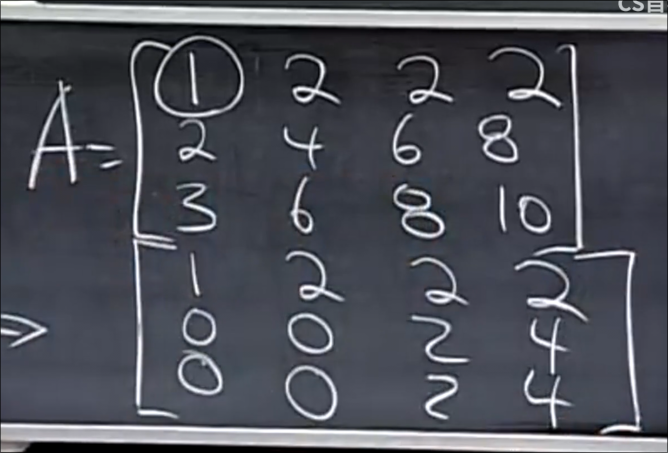 CS自
A= [ 1 2 2 2
2 4 6 8
3 6 8 10 ]
⇒ [ 1 2 2 2
0 0 2 4
0 0 2 4 ]